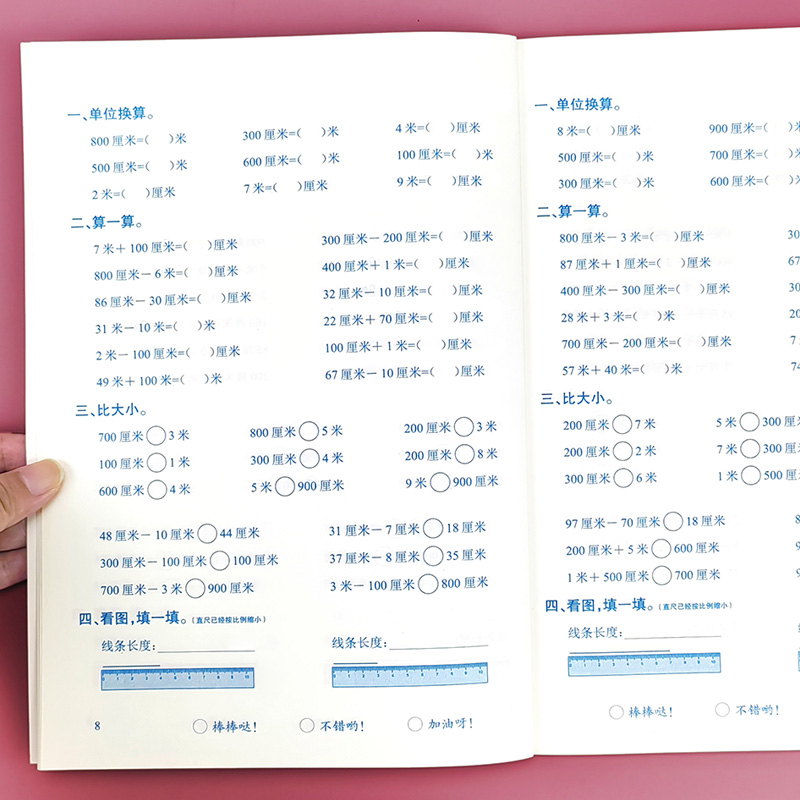 一、单位换算。
800 厘米=(  )米  300 厘米=(  )米  4 米=(  )厘米
500 厘米=(  )米  600 厘米=(  )米  100 厘米=(  )米
2 米=(  )厘米  7 米=(  )厘米  9 米=(  )厘米
二、算一算。
7 米＋100 厘米=(  )厘米  300 厘米－200 厘米=(  )厘米
800 厘米－6 米=(  )厘米  400 厘米＋1 米=(  )厘米
86 厘米－30 厘米=(  )厘米  32 厘米－10 厘米=(  )厘米
31 米－10 米=(  )米  22 厘米＋70 厘米=(  )厘米
2 米－100 厘米=(  )厘米  100 厘米＋1 米=(  )厘米
49 米＋100 米=(  )米  67 厘米－10 厘米=(  )厘米
三、比大小。
700 厘米○3 米  800 厘米○5 米  200 厘米○3 米
100 厘米○1 米  300 厘米○4 米  200 厘米○8 米
600 厘米○4 米  5 米○900 厘米  9 米○900 厘米
48 厘米－10 厘米○44 厘米  31 厘米－7 厘米○18 厘米
300 厘米－100 厘米○100 厘米  37 厘米－8 厘米○35 厘米
700 厘米－3 米○900 厘米  3 米－100 厘米○800 厘米
四、看图,填一填。(直尺已经按比例缩小)
线条长度:________  线条长度:________
0 1 2 3 4 5 6 7 8 9 10  0 1 2 3 4 5 6 7 8 9 10
8  ○棒棒哒!  ○不错哟!  ○加油呀!
一、单位换算。
8 米=(  )厘米  900 厘米=(
500 厘米=(  )米  700 厘米=(
300 厘米=(  )米  600 厘米=(
二、算一算。
800 厘米－3 米=(  )厘米
87 厘米＋1 厘米=(  )厘米
400 厘米－300 厘米=(  )厘米
28 米＋3 米=(  )米
700 厘米－200 厘米=(  )厘米
57 米＋40 米=(  )米
三、比大小。
200 厘米○7 米  5 米○300 厘米
200 厘米○2 米  7 米○300
300 厘米○6 米  1 米○500 厘米
97 厘米－70 厘米○18 厘米
200 厘米＋5 米○600 厘米
1 米＋500 厘米○700 厘米
四、看图,填一填。(直尺已经按比例缩小)
线条长度:________
0 1 2 3 4 5 6 7 8 9 10
○棒棒哒!  ○不错哟!